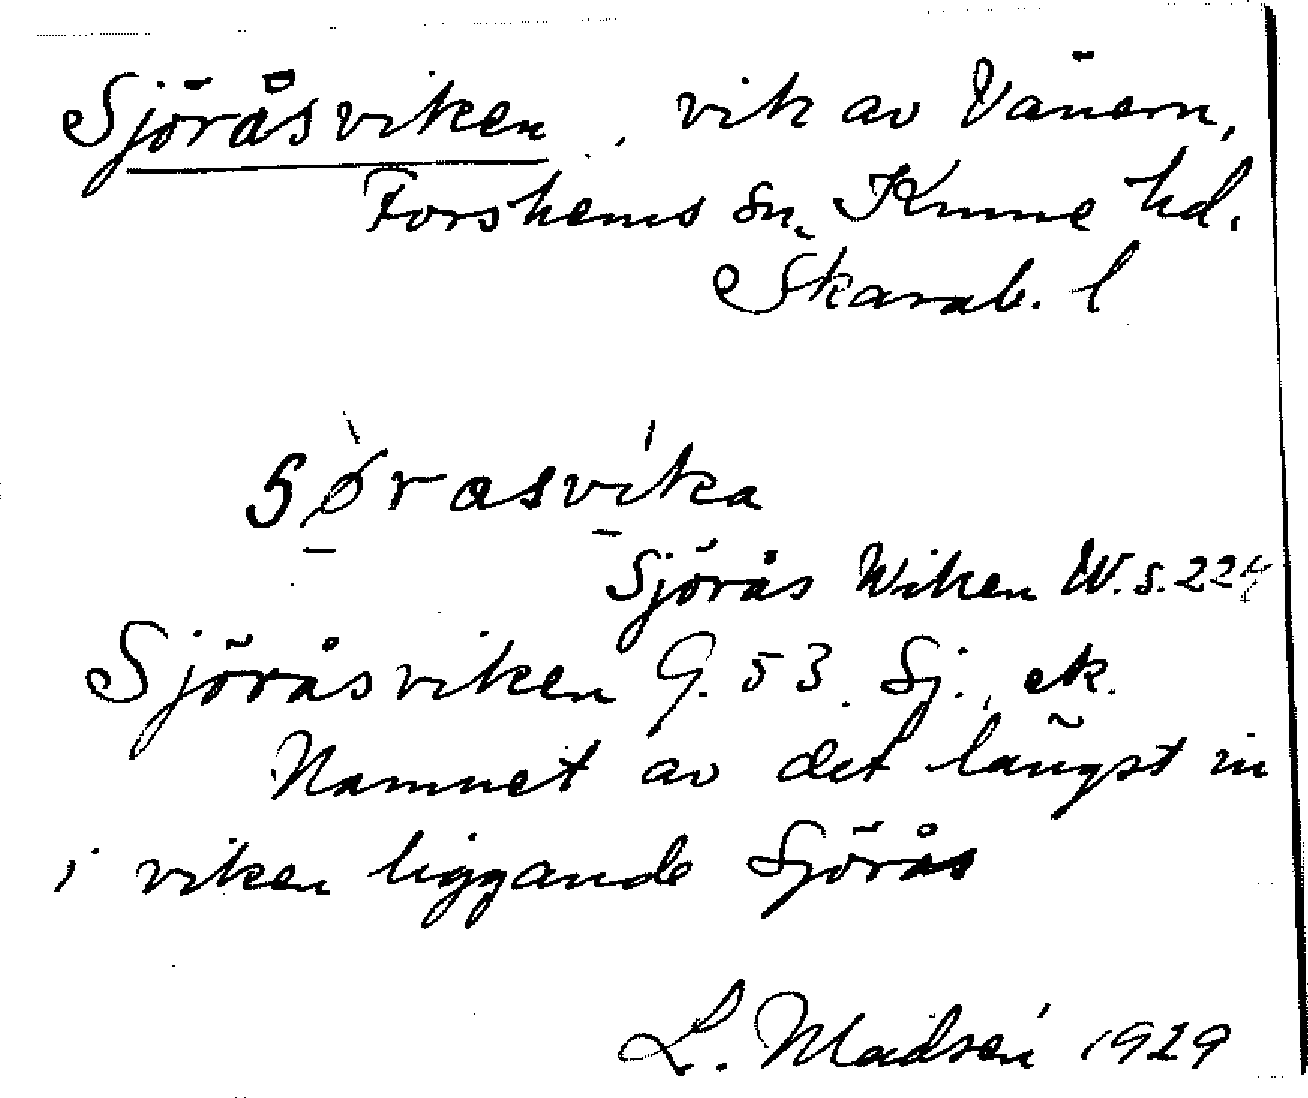 Sjöråsviken, vik av Vänern,
Forshems sn, Kinne hd.
Skarab. l
sørasvika
Sjörås Wiken W. s. 224
Sjöråsviken G. 53. Sj., ek.
Namnet av det längst in
i viken liggande Sjörås
L. Madsén 1929